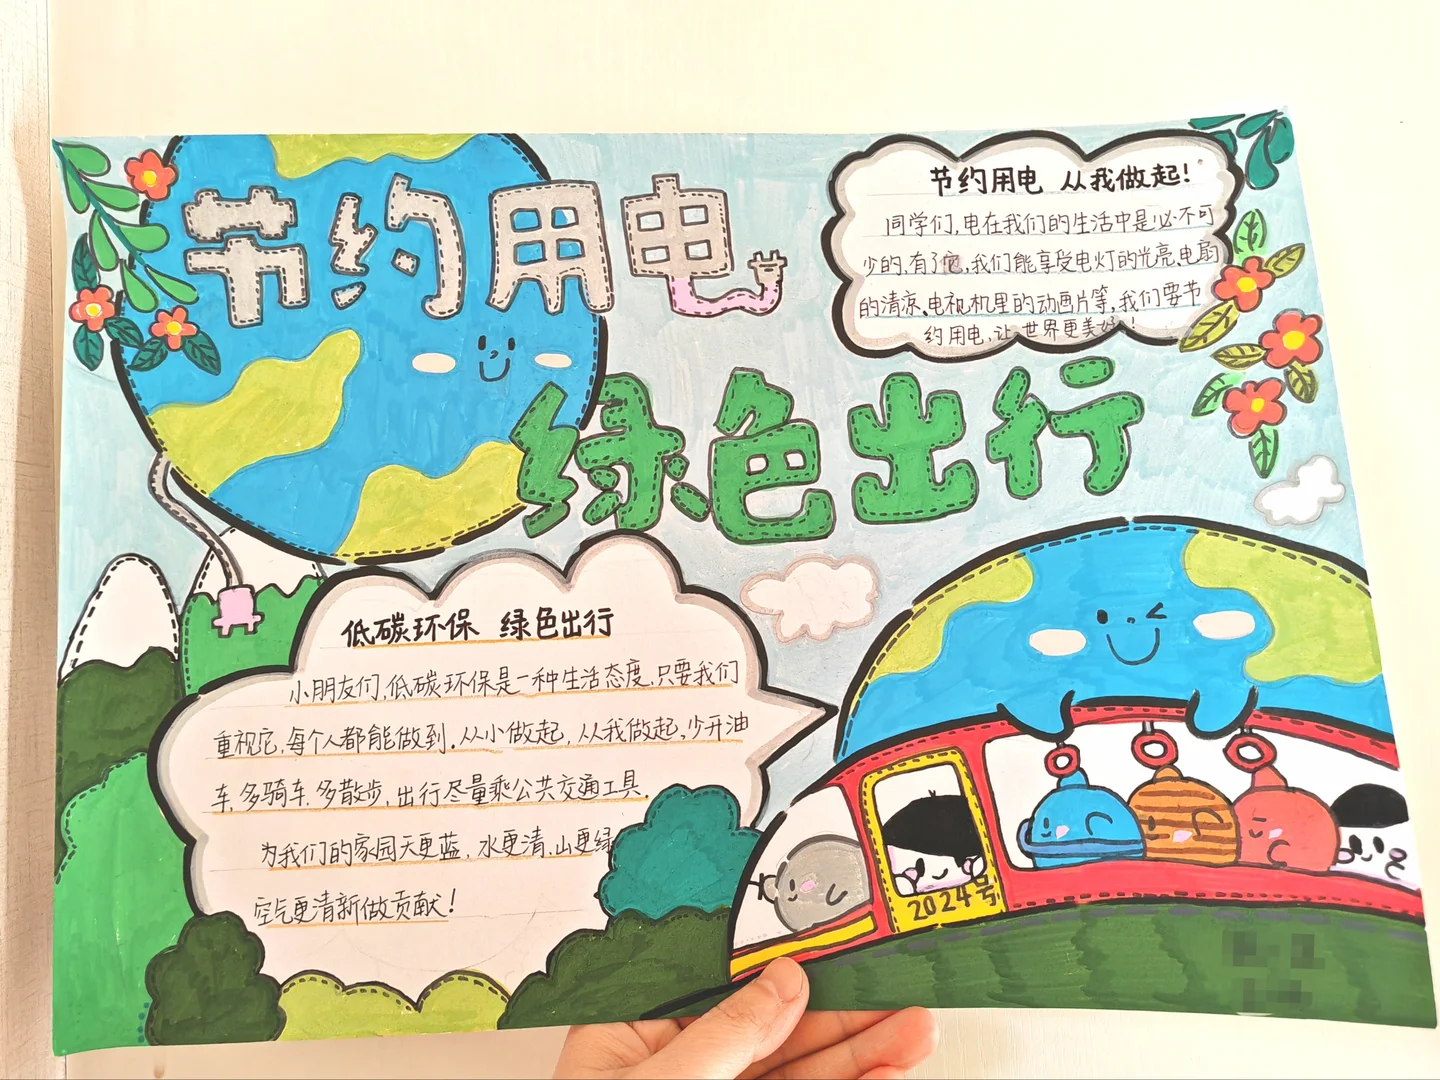 节约用电
绿色出行
节约用电 从我做起!
同学们,电在我们的生活中是必不可
少的,有了它,我们能享受电灯的光亮、电扇
的清凉、电视机里的动画片等,我们要节
约用电,让世界更美好!
低碳环保 绿色出行
小朋友们,低碳环保是一种生活态度,只要我们
重视它,每个人都能做到。从小做起,从我做起,少开油
车,多骑车,多散步,出行尽量乘公共交通工具。
为我们的家园天更蓝,水更清,山更绿
空气更清新做贡献!
2024号